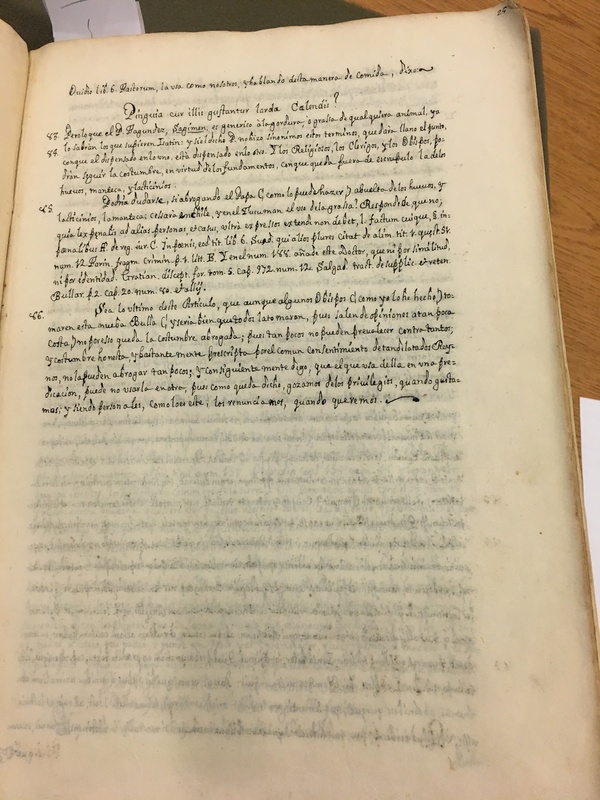 25
Ovidio lib. 6. Fastorum, la usa como nosotros, y hablando desta manera de comida, dixo:
Pinguia cur illis gustantur larda Calendis?
83. Por lo que el P. Fagundez, Sagimen, es generico à la gordura, o grassa de qualquiera animal, ya
84. lo sabràn los que supieren Latin: y si el dicho P. no hizo sinonimos estos terminos, quedarà llano el punto,
conque el dispensado en lo uno, està dispensado en lo otro. Y los Religiosos, los Clerigos, y los Obispos, po-
dràn seguir la costumbre, en virtud de los fundamentos, conque queda fuera de escrupulo la de los
huevos, manteca, y lacticinios.
85. Podria dudarse, si abrogando el Papa (como lo puede hazer) a bueltas de los huevos, y
lacticinios, la manteca; cessaria en Chile, y en el Tucuman el uso de la grassa? Responde, que no;
quia lex penalis ad alias personas, et casus, ultra expressos extendi non debet, l. factum cuique, §. in
pænalibus ff. de reg. iur. C. In pœnis, eod. tit. lib. 6. Supd. qui alios plures citat de alim. tit. 1. quæst. 51.
num. 12. Farin. fragm. crimin. p. 1. litt. B. Y en el num. 188. añade este Doctor, que ni por similitud,
ni por identidad. Gratian. discept. for. tom. 5. cap. 972. num. 12. Salgad. tract. de supplic. et reten.
Bullar. p. 2. cap. 20. num. 80. et alijs.
86. Sea lo ultimo deste Articulo, que aunque algunos Obispos (como yo lo he hecho) to-
maren esta nueba Bulla (y seria bien que todos la tomaran, pues salen de opiniones a tan poca
costa,) no por esso queda la costumbre abrogada; pues tan pocos no pueden prevalecer contra tantos;
y costumbre honesta, y bastantemente prescripta por el comun consentimiento de tan dilatados Rey-
nos, no la pueden abrogar tan pocos; y consiguientemente digo, que el que usa della en una pre-
dicacion, puede no usarla en otra, pues como queda dicho, gozamos de los privilegios, quando gusta-
mos; y siendo personales, como lo es este; los renunciamos, quando queremos.